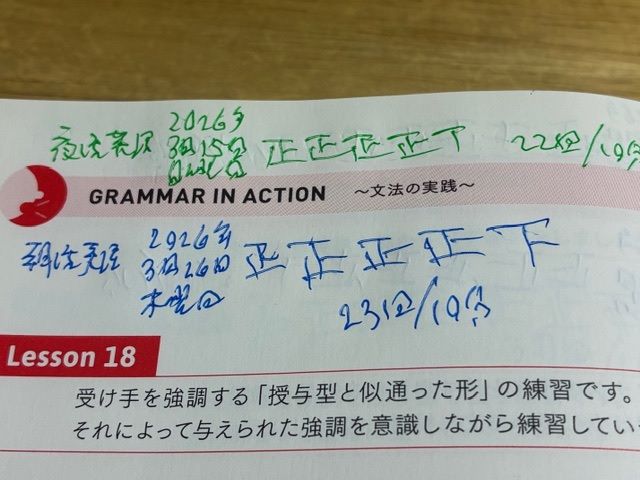 2026年
夜活英環 3月15日 正正正正丅 22回/10分
日曜日
GRAMMAR IN ACTION ～文法の実践～
2026年
朝活英語 3月26日 正正正正下
木曜日 23回/10分
Lesson 18
受け手を強調する「授与型と似通った形」の練習です。
それによって与えられた強調を意識しながら練習してい